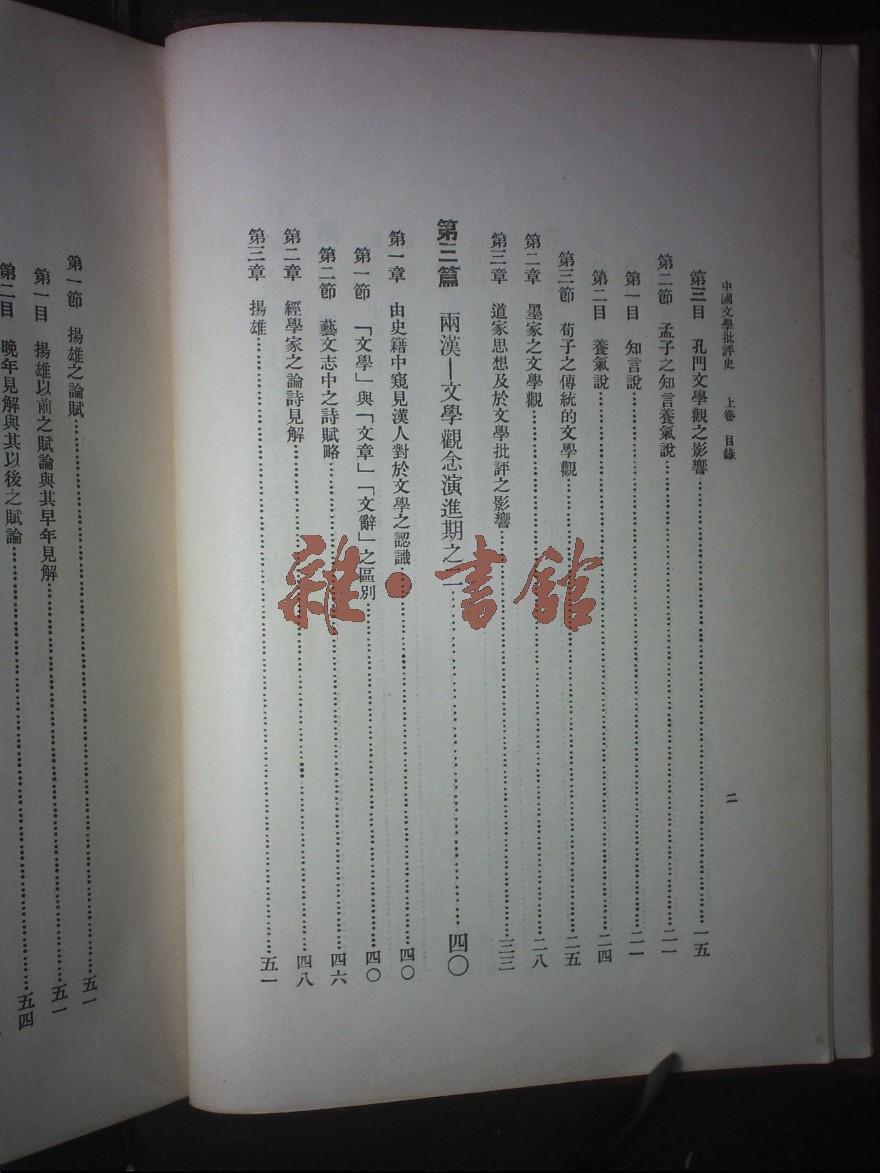 中國文學批評史 上卷 目錄 二
第三目 孔門文學觀之影響 一五
第二節 孟子之知言養氣說 二一
第一目 知言說 二一
第二目 養氣說 二四
第三節 荀子之傳統的文學觀 二五
第二章 墨家之文學觀 二八
第三章 道家思想及於文學批評之影響 三三
第三篇 兩漢—文學觀念演進期之一 四〇
第一章 由史籍中窺見漢人對於文學之認識 四〇
第一節 「文學」與「文章」「文辭」之區別 四〇
第二節 藝文志中之詩賦略 四六
第二章 經學家之論詩見解 四八
第三章 揚雄 五一
第一節 揚雄之論賦 五一
第一目 揚雄以前之賦論與其早年見解 五一
第二目 晚年見解與其以後之賦論 五四
雜·書館